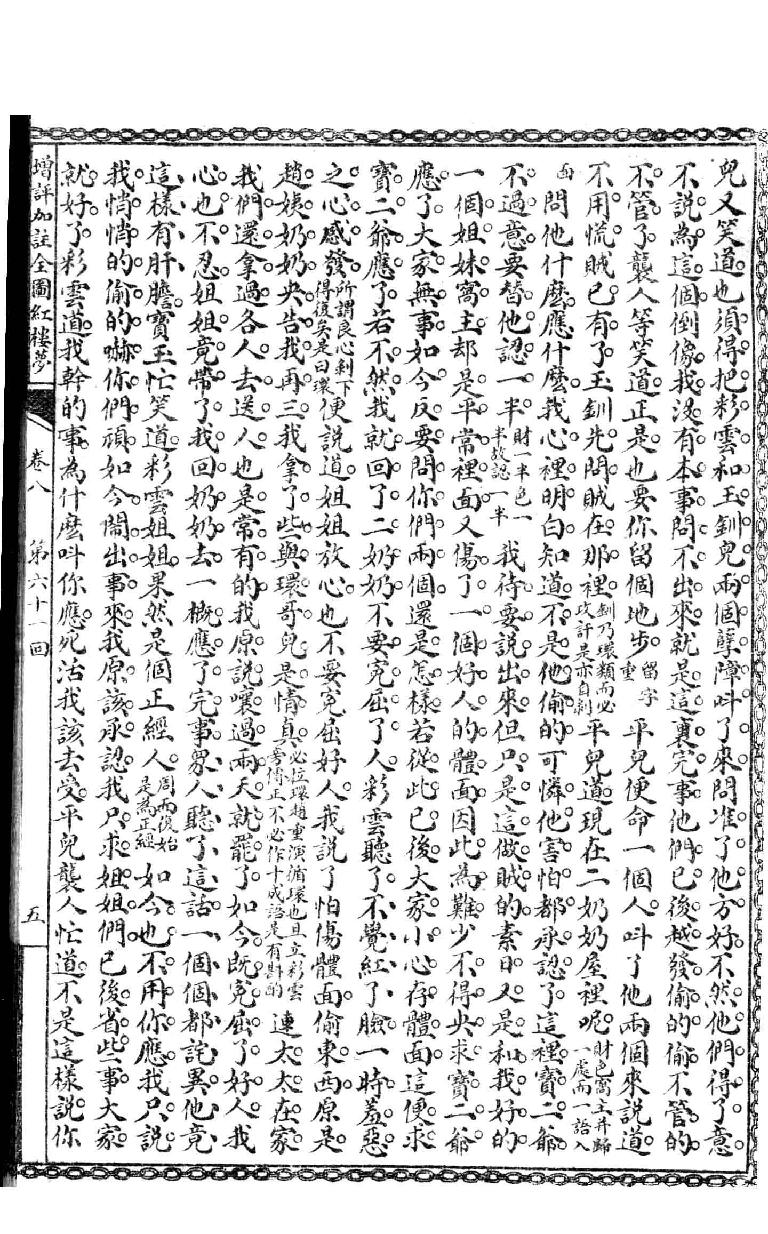 兒又笑道也須得把彩雲和玉釧兒兩個孽障呌了來問准了他方好不然他們得了意
不說為這個倒像我沒有本事問不出來就是這裏完事他們已後越發偷的偷不管的
不管了襲人等笑道正是也要你留個地步留字重平兒便命一個人呌了他兩個來說道
不用慌賊已有了玉釧先問賊在那裡釧乃環類而必攻訐是亦自剖平兒道現在二奶奶屋裡呢財色窩主并歸一處而一語入
面問他什麼應什麼我心裡明白知道不是他偷的可憐他害怕都承認了這裡寶二爺
不過意要替他認一半財一半色一半故認一半我待要說出來但只是這做賊的素日又是和我好的
一個姐妹窩主却是平常裡面又傷了一個好人的體面因此為難少不得央求寶二爺
應了大家無事如今反要問你們兩個還是怎樣若從此已後大家小心存體面這便求
寶二爺應了若不然我就回了二奶奶不要冤屈了人彩雲聽了不覺紅了臉一時羞惡
之心感發所謂良心剩下得復矣是曰環便說道姐姐放心也不要冤屈好人我說了怕傷體面偷東西原是
趙姨奶奶央告我再三我拿了些與環哥兒是情真必拉環趙重演循環也且立彩雲旁傅正不必作十成語是有斟酌連太太在家
我們還拿過各人去送人也是常有的我原說嚷過兩天就罷了如今既冤屈了好人我
心也不忍姐姐竟帶了我回奶奶去一概應了完事眾人聽了這話一個個都詫異他竟
這樣有肝膽寶玉忙笑道彩雲姐姐果然是個正經人周而復始是為正經如今也不用你應我只說
我悄悄的偷的嚇你們頑如今鬧出事來我原該承認我只求姐姐們已後省些事大家
就好了彩雲道我幹的事為什麼呌你應死活我該去受平兒襲人忙道不是這樣說你
增評加註全圖紅樓夢
卷八
第六十一回
五